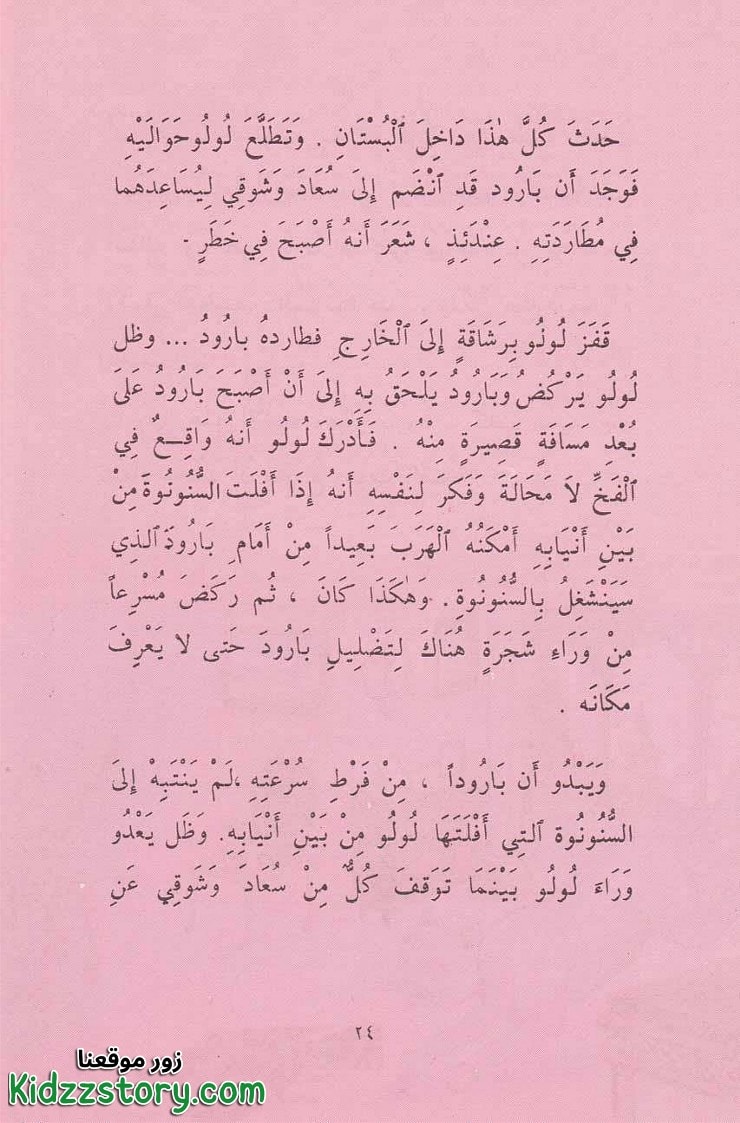 حَدَثَ كُلَّ هٰذَا دَاخِلَ ٱلْبُسْتَانِ . وَتَطَلَّعَ لُولُو حَوَالَيْهِ
فَوَجَدَ أَن بَارُود قَدِ ٱنْضَم إِلىَ سُعَادَ وَشَوقِي لِيُسَاعِدَهُما
فِي مُطَارَدَتِهِ . عِنْدَئِذٍ ، شَعَرَ أَنهُ أَصْبَحَ فِي خَطَرٍ .
قَفَزَ لُولُو بِرَشَاقَةٍ إِلىَ ٱلْخَارِجِ فطاردهُ بارُودُ ... وظل
لُولُو يَرْكُضُ وَبَارُودُ يَلْحَقُ بِهِ إِلىَ أَنْ أَصْبَحَ بَارُودُ عَلىَ
بُعْدِ مَسَافَةٍ قَصِيرَةٍ مِنْهُ . فَأَدْرَكَ لُولُو أَنهُ وَاقِعٌ فِي
ٱلْفَخِّ لاَ مَحَالَةَ وَفَكرَ لِنَفْسِهِ أَنهُ إِذَا أَفْلَتَ السُّنُونُوةَ مِنْ
بَيْنِ أَنْيَابِهِ أَمْكَنُهُ ٱلْهَرَبَ بَعِيداً مِنْ أَمَامِ بَارُودَ ٱلذِي
سَيَنْشَغِلُ بِالسُّنُونُوةِ . وَهٰكَذَا كَانَ ، ثُم رَكَضَ مُسْرِعاً
مِنْ وَرَاءِ شَجَرَةٍ هُنَاكَ لِتَضْلِيلِ بَارُودَ حَتى لا يَعْرِفَ
مَكَانَه .
وَيَبْدُو أَن بَارُوداً ، مِنْ فَرْطِ سُرْعَتِهِ ،لَمْ يَنْتَبِهْ إِلىَ
السُّنُونُوة ٱلتِي أَفْلَتَهَا لُولُو مِنْ بَيْنِ أَنْيَابِهِ. وَظَل يَعْدُو
وَرَاءَ لُولُو بَيْنَمَا تَوَقفَ كُلٌّ مِنْ سُعَادَ وَشَوقِي عَنِ
٢٤
زور موقعنا
Kidzzstory.com